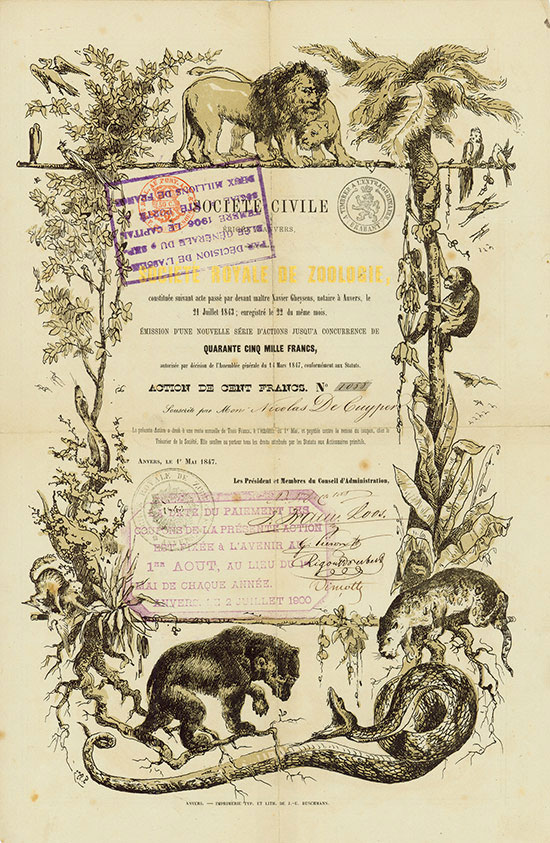 SOCIÉTÉ CIVILE
ANVERS,
SOCIÉTÉ ROYALE DE ZOOLOGIE,
constituée suivant acte passé par devant maître Xavier Gheysens, notaire à Anvers, le
21 Juillet 1843; enregistré le 22 du même mois.
ÉMISSION D'UNE NOUVELLE SÉRIE D'ACTIONS JUSQU'A CONCURRENCE DE
QUARANTE CINQ MILLE FRANCS,
autorisée par décision de l'Assemblée générale du 14 Mars 1847, conformément aux Statuts.
ACTION DE CENT FRANCS. N° 1088
Souscrite par Monsr Nicolas De Cuyper
La présente Action a droit à une rente annuelle de Trois Francs, à l'échéance du 1r Mai, et payable contre la remise du coupon, chez le
Trésorier de la Société. Elle confère au porteur tous les droits attribués par les Statuts aux Actionnaires primitifs.
ANVERS, LE 1r MAI 1847.
Les Président et Membres du Conseil d'Administration,
PAR DECISION DE L'ASSEMBLÉE GÉNÉRALE DU
1906 LE CAPITAL
ÉTÉ PORTÉ
DEUX MILLIONS DE FRANCS
TIMBRE A L'EXTRAORDINAIRE
BRABANT
ROYALE DE
LA DATE DU PAIEMENT DES
COUPONS DE LA PRÉSENTE ACTION
EST FIXÉE À L'AVENIR AU
1ER AOUT, AU LIEU DU 1ER
MAI DE CHAQUE ANNÉE.
ANVERS, LE 2 JUILLET 1900
ANVERS. — IMPRIMERIE TYP. ET LITH. DE J.-E. BUSCHMANN.